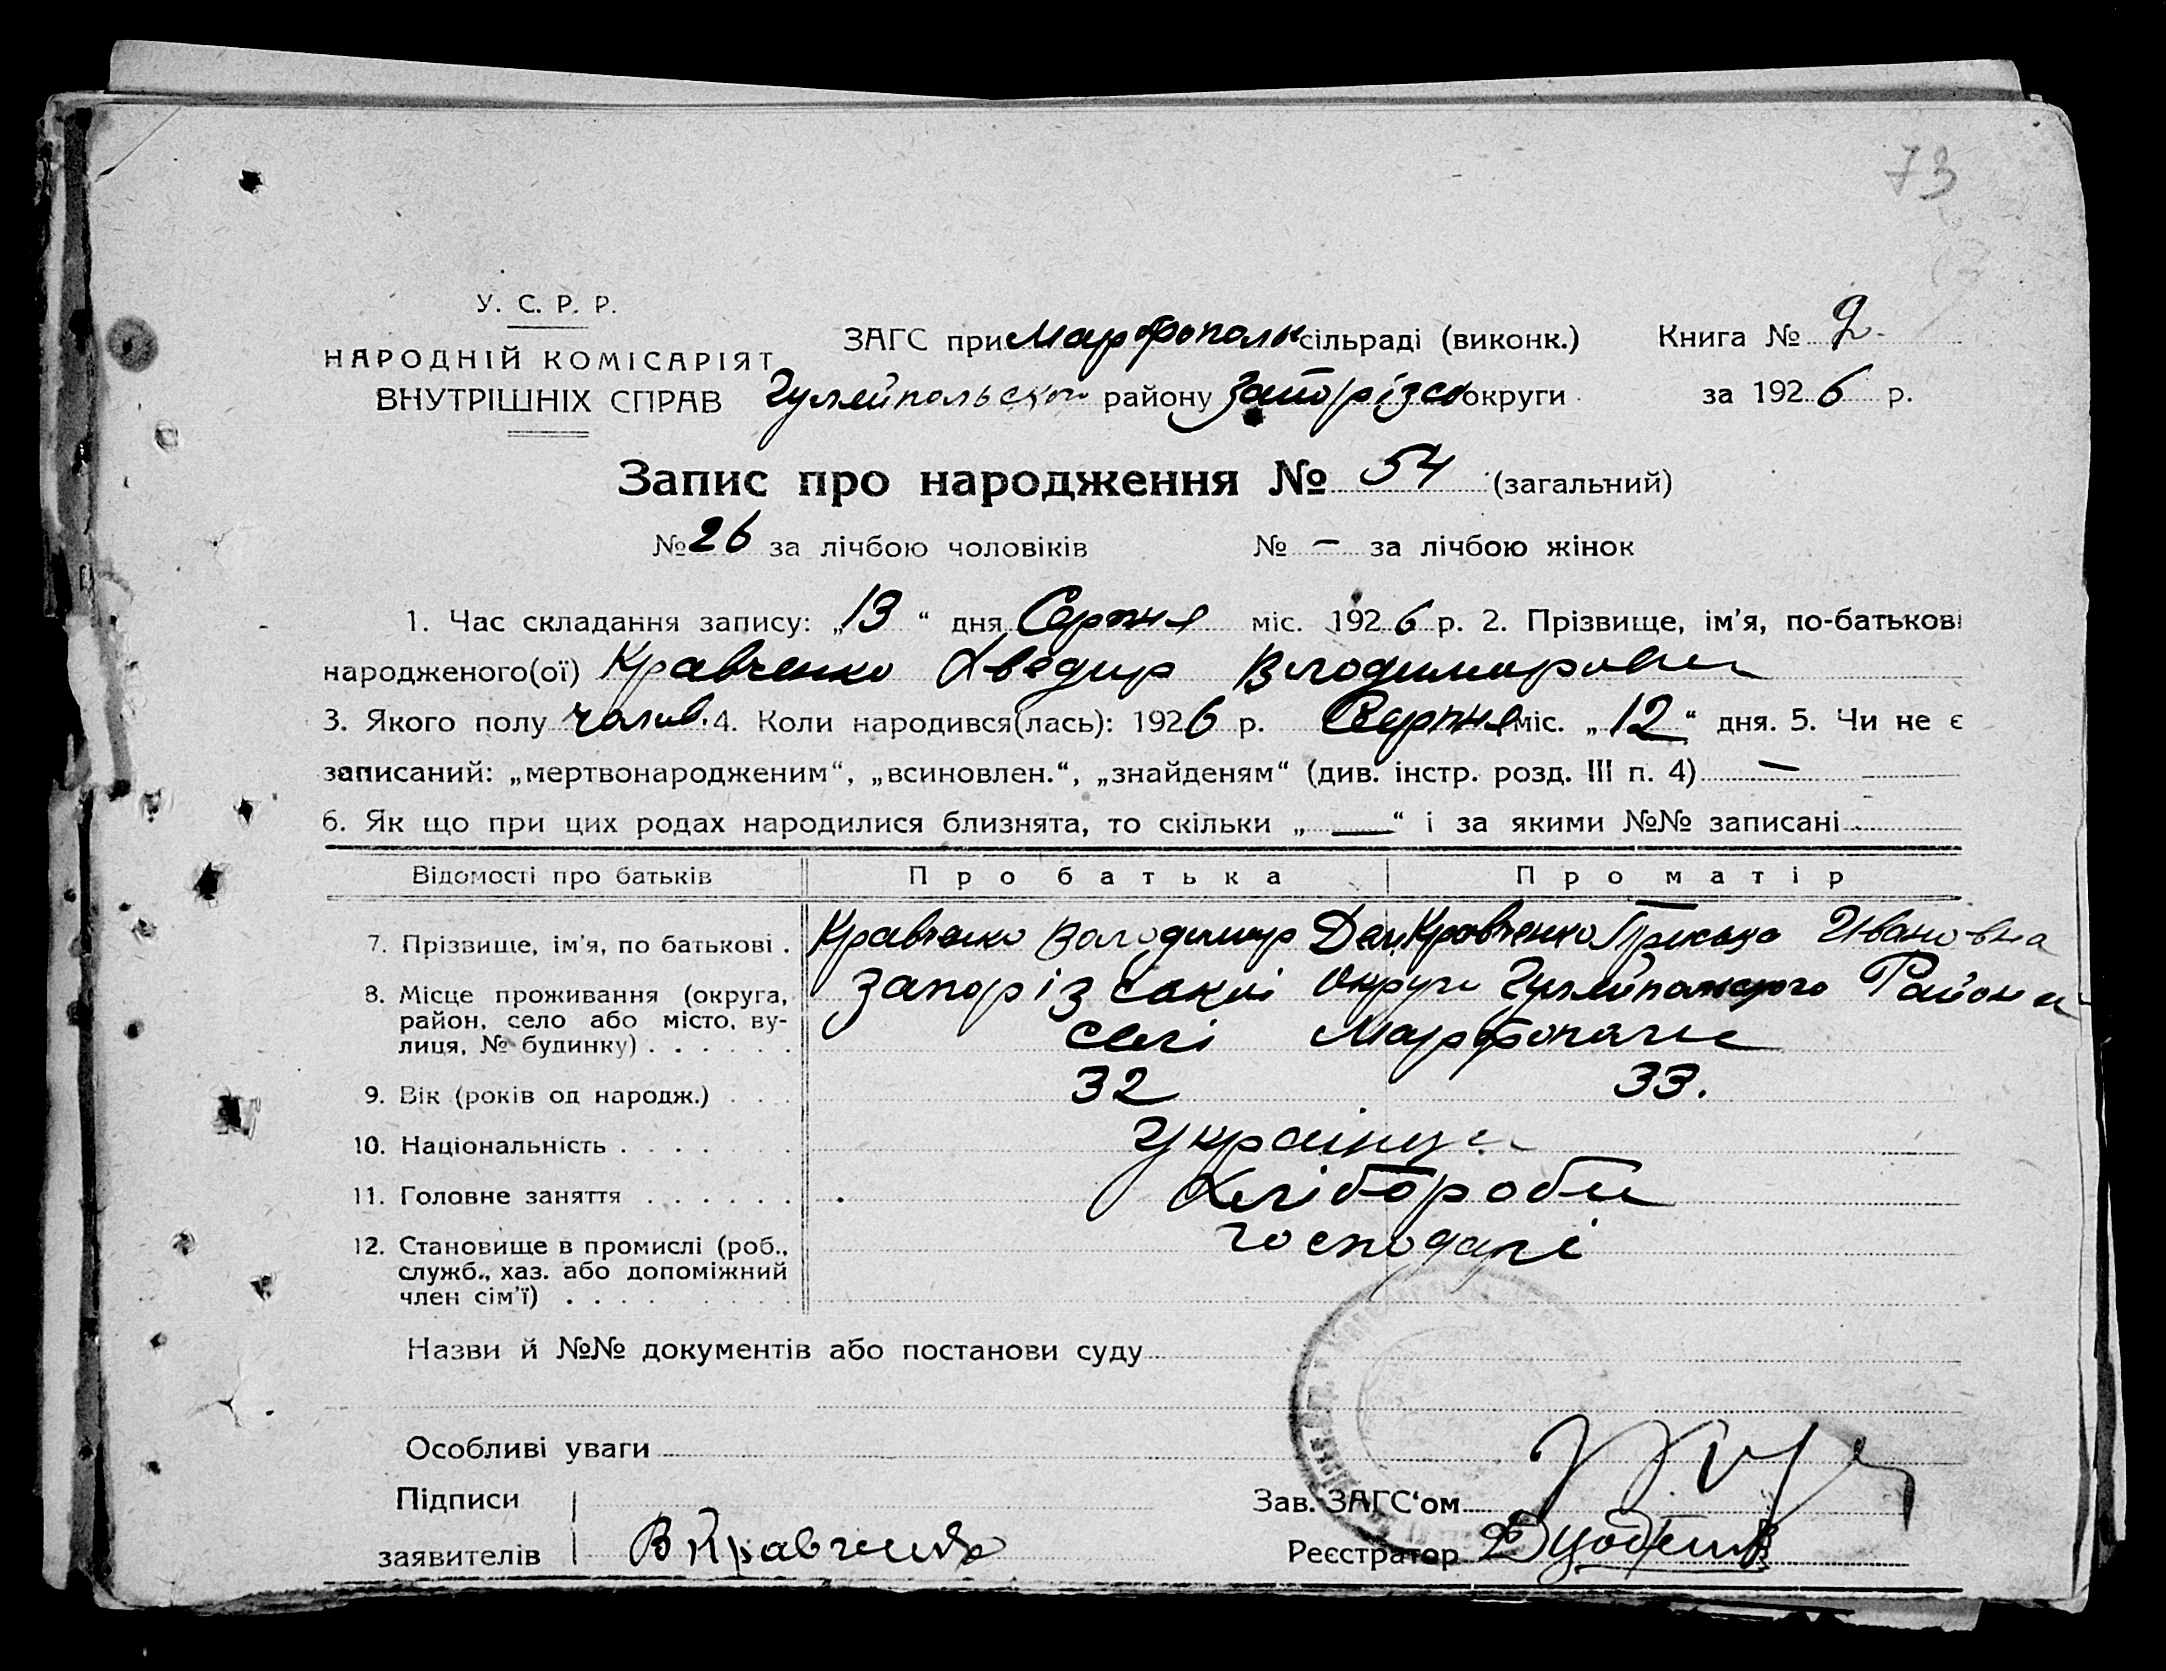 73
У. С. Р. Р.
НАРОДНІЙ КОМІСАРІЯТ
ВНУТРІШНІХ СПРАВ
ЗАГС при Марфополь сільраді (виконк.) Книга № 2
Гуляйпольског району Запорізськ округи за 1926 р.
Запис про народження № 54 (загальний)
№ 26 за лічбою чоловіків № — за лічбою жінок
1. Час складання запису: „13“ дня Серпня міс. 1926 р. 2. Прізвище, ім'я, по-батькові
народженого(ої) Кравченко Хведир Володимирович
3. Якого полу чолов. 4. Коли народився(лась): 1926 р. Серпня міс. „12“ дня. 5. Чи не є
записаний: „мертвонародженим“, „всиновлен.“, „знайденям“ (див. інстр. розд. III п. 4) —
6. Як що при цих родах народилися близнята, то скільки „—“ і за якими №№ записані
Відомості про батьків Про батька Про матір
7. Прізвище, ім'я, по батькові . Кравченко Володимир Дем. Кравченко Приська Ивановна
8. Місце проживання (округа, район, село або місто, вулиця, № будинку) . . . . . . Запорізської Округи Гуляйпольского Району
селі Марфополе
9. Вік (років од народж.) . . . 32 33.
10. Національність . . . . . . . Українци
11. Головне заняття . . . . . . Хлібороби
12. Становище в промислі (роб., служб., хаз. або допоміжний член сім'ї) . . . . . . . господарі
Назви й №№ документів або постанови суду
Особливі уваги
Підписи
заявителів В Кравченко
Зав. ЗАГС'ом
Реєстратор